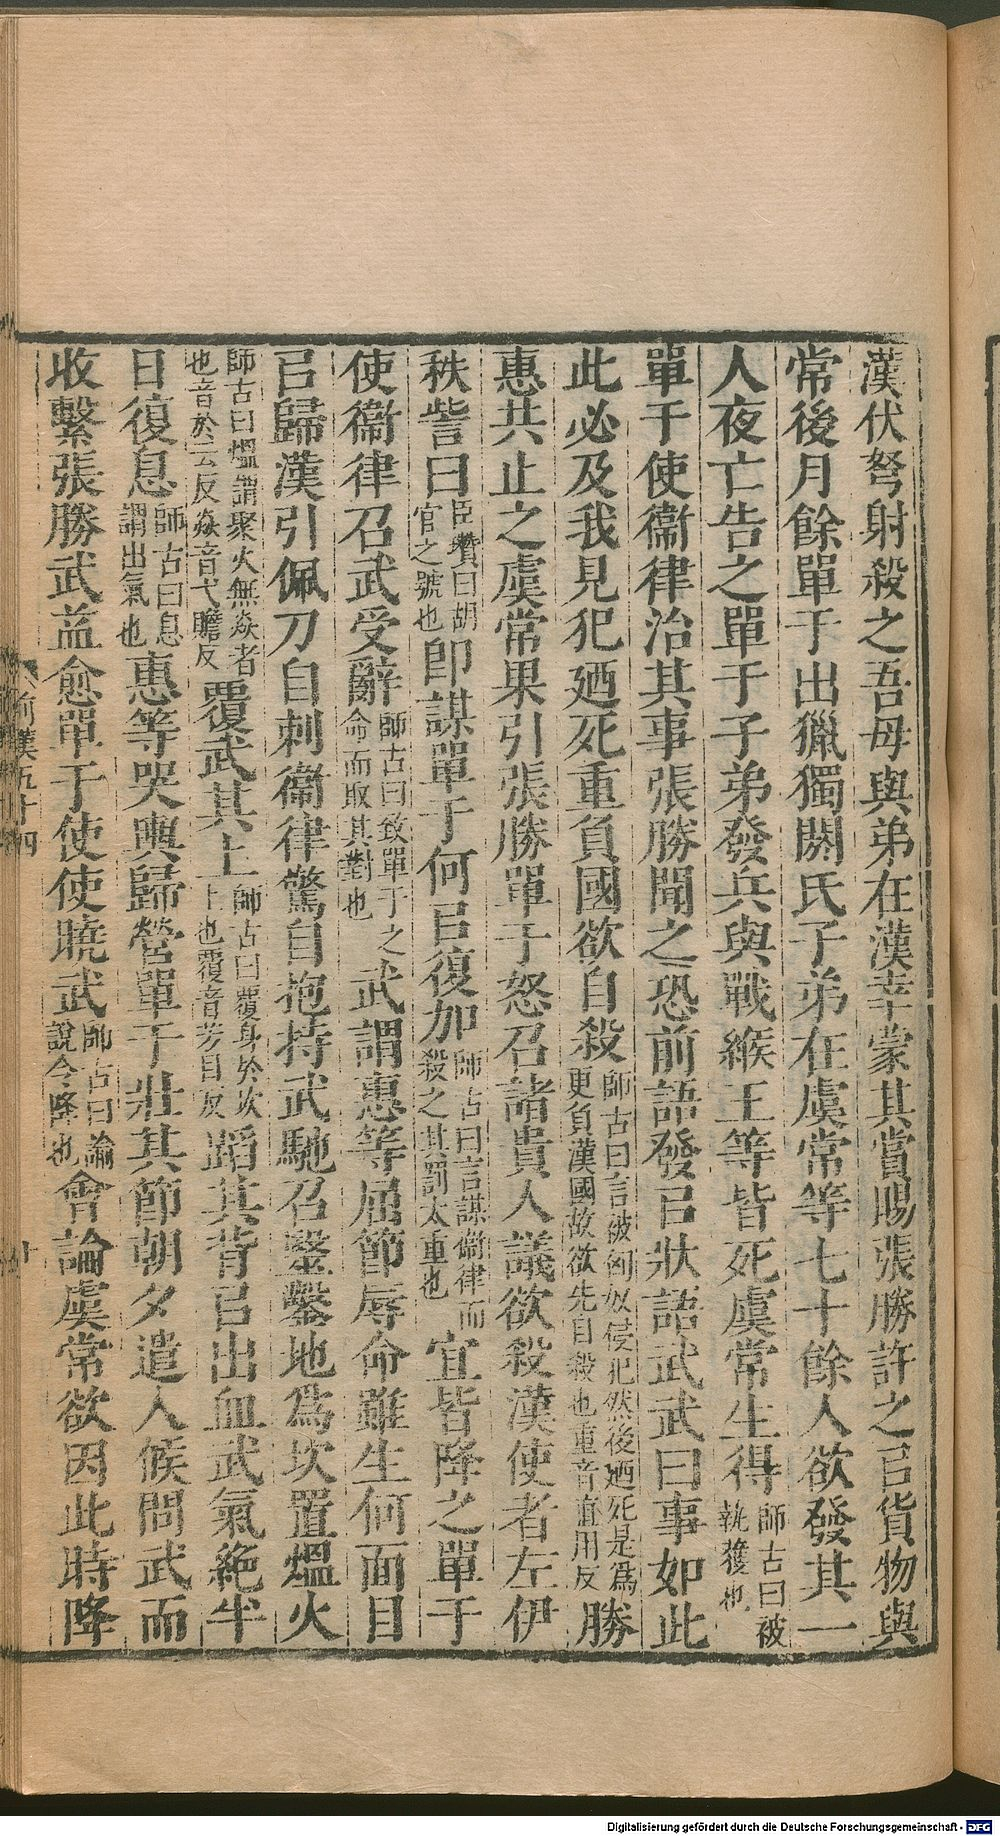 漢伏弩射殺之吾母與弟在漢幸蒙其賞賜張勝許之㠯貨物與
常後月餘單于出獵獨閼氏子弟在虞常等七十餘人欲發其一
人夜亡告之單于子弟發兵與戰緱王等皆死虞常生得師古曰被執獲也
單于使衞律治其事張勝聞之恐前語發㠯狀語武武曰事如此
此必及我見犯廼死重負國欲自殺師古曰言被匈奴侵犯然後廼死是爲更負漢國故欲先自殺也重音直用反勝
惠共止之虞常果引張勝單于怒召諸貴人議欲殺漢使者左伊
秩訾曰臣瓚曰胡官之號也卽謀單于何㠯復加師古曰言謀衞律而殺之其罰太重也宜皆降之單于
使衞律召武受辭師古曰致單于之命而取其對也武謂惠等屈節辱命雖生何面目
㠯歸漢引佩刀自刺衞律驚自抱持武馳召毉鑿地爲坎置熅火
師古曰熅謂聚火無焱者也音於云反焱音弋贍反覆武其上師古曰覆身於坎上也覆音芳目反蹈其背㠯出血武氣絶半
日復息師古曰息謂出氣也惠等哭輿歸營單于壯其節朝夕遣人候問武而
收繫張勝武益愈單于使使曉武師古曰諭說令降也會論虞常欲因此時降
前漢五十四
十
Digitalisierung gefördert durch die Deutsche Forschungsgemeinschaft - DFG